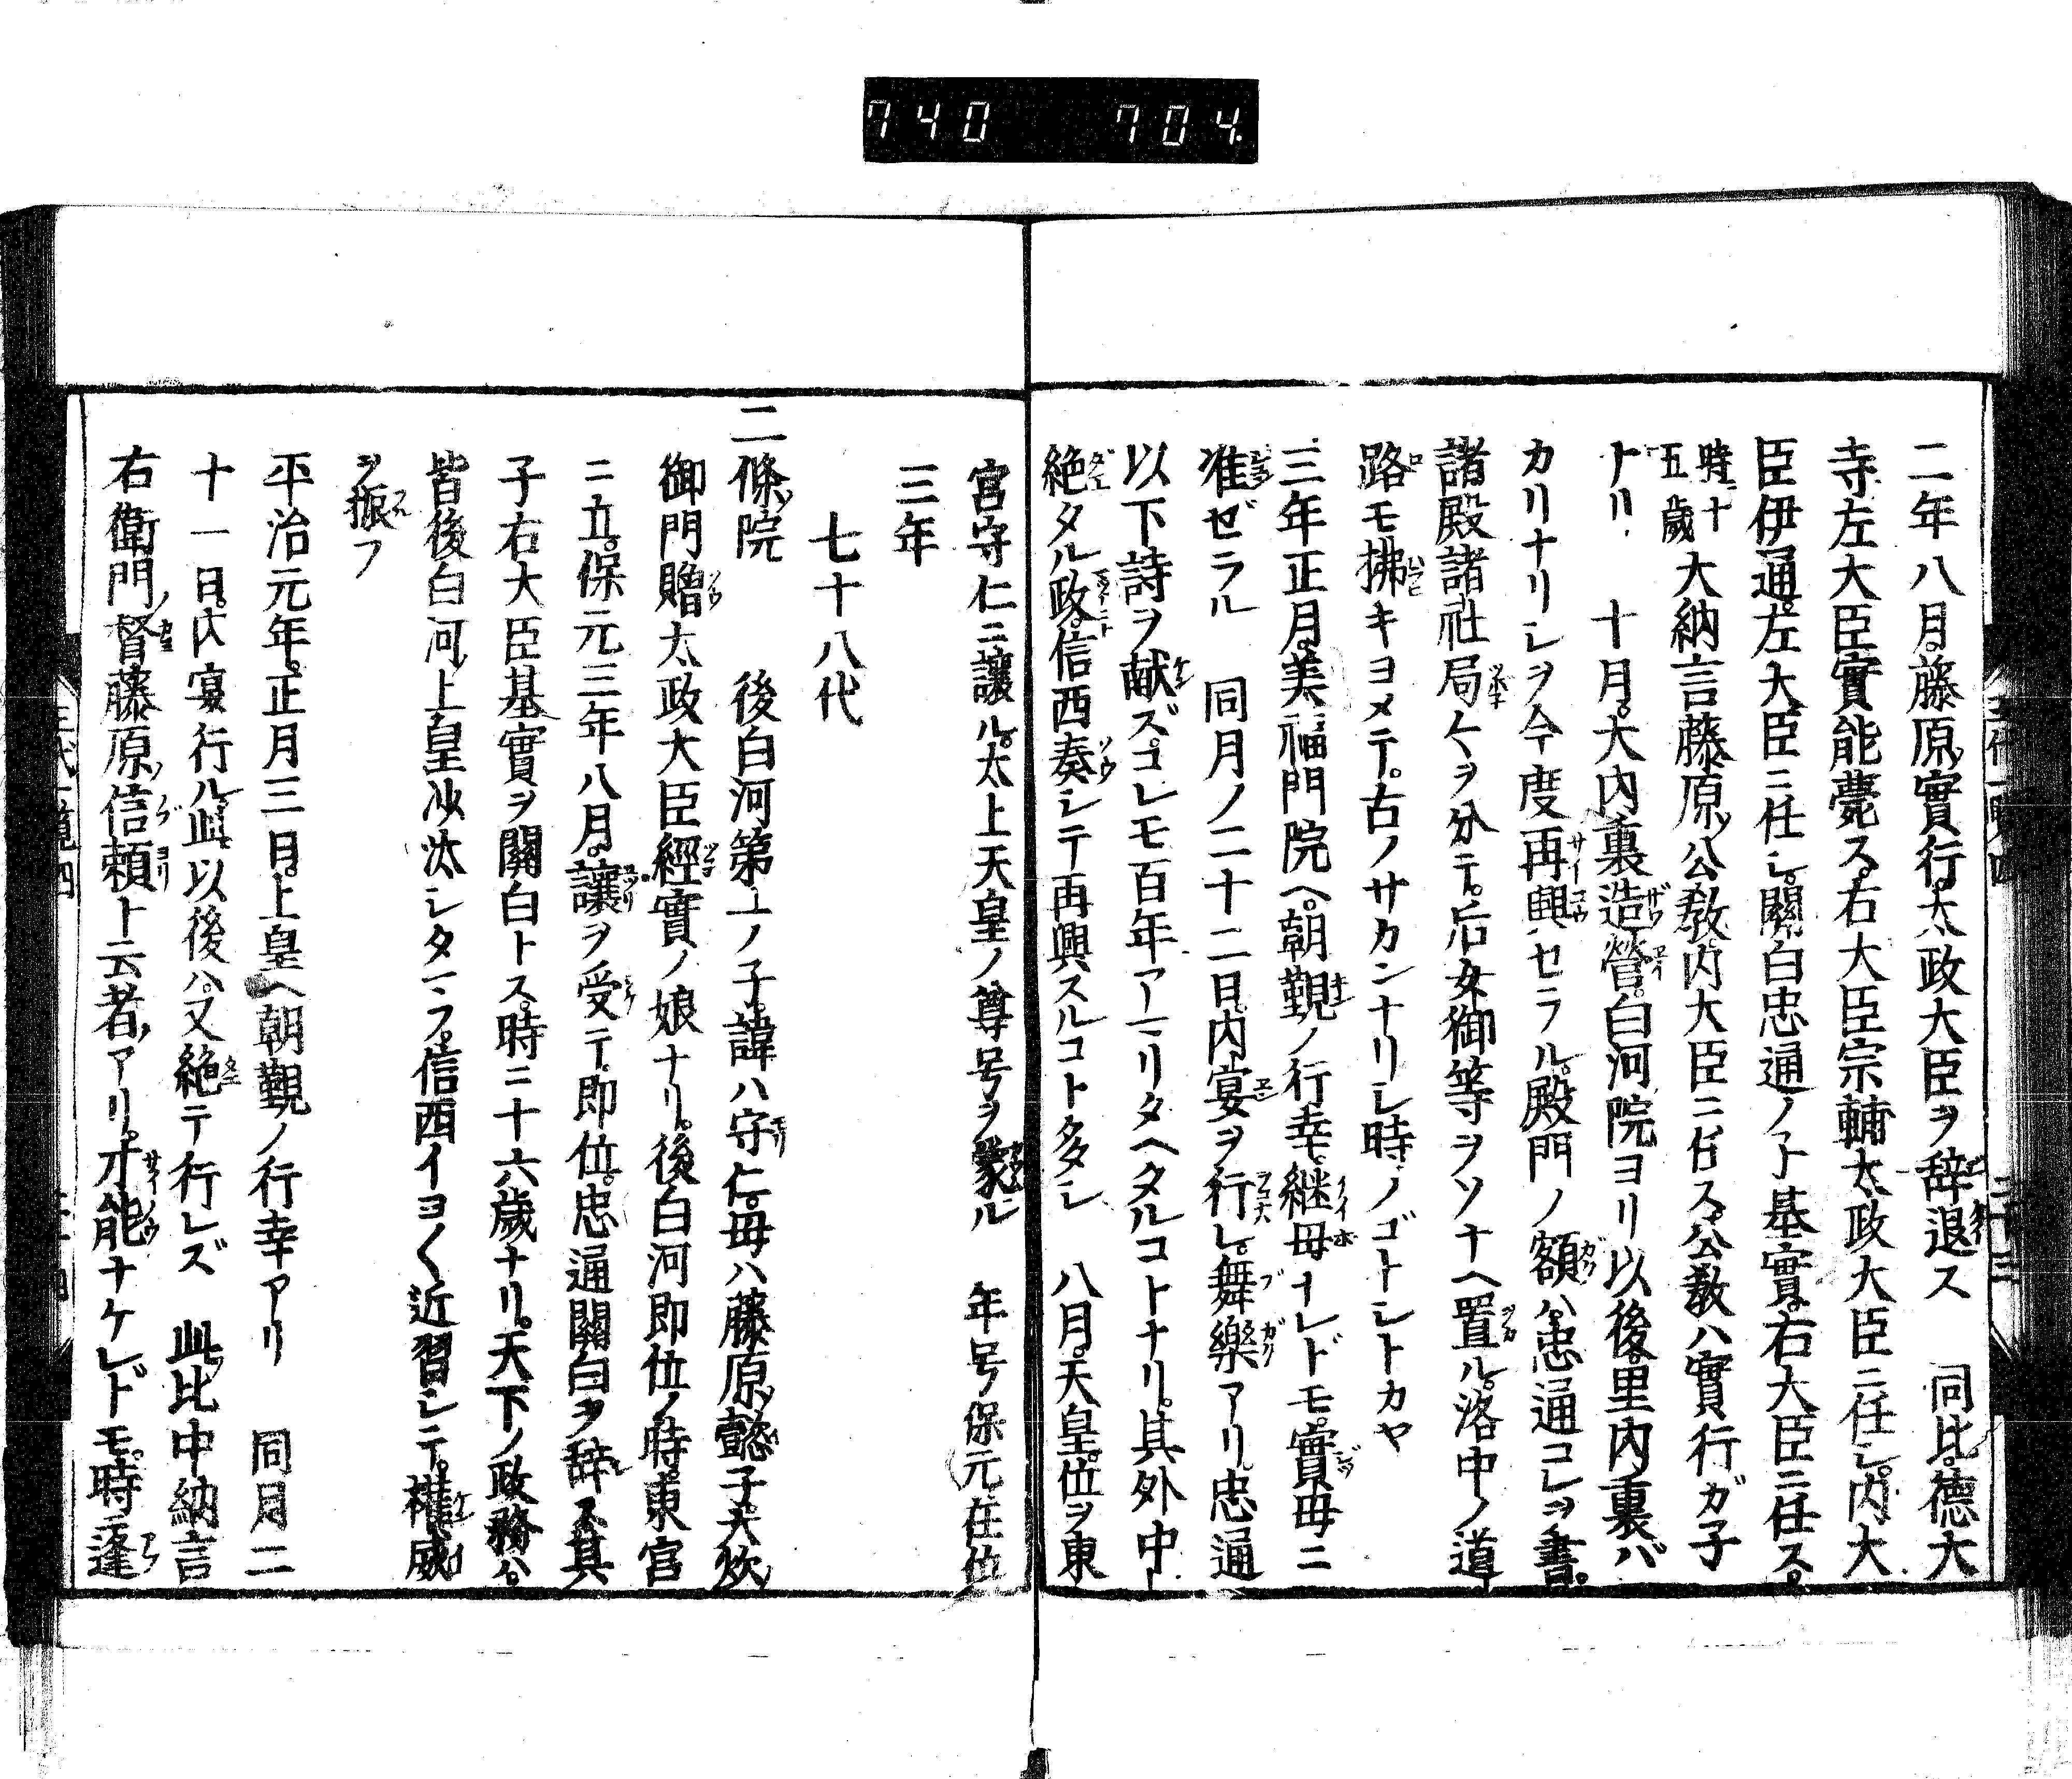 740 704.
二年八月。藤原ノ實行。太政大臣ヲ辞退ス 同比。德大
寺左大臣實能薨ス。右大臣宗輔太政大臣ニ任シ。内大
臣伊通。左大臣ニ任シ。關白忠通ノ子基實。右大臣ニ任ス。
時ニ十五歲 大納言藤原ノ公敎。内大臣ニ任ス。公敎ハ實行ガ子
ナリ 十月。大内裏造營。白河院ヨリ以後。里内裏バ
カリナリシヲ今度再興セラル。殿門ノ額ハ。忠通コレヲ書。
諸殿諸社局々ヲ分テ。后女御等ヲソナヘ置ル。洛中ノ道
路モ拂キヨメテ。古ノサカンナリシ時ノゴトシトカヤ
三年正月。美福門院ヘ。朝覲ノ行幸。継母ナレドモ。實母ニ
准ゼラル 同月ノ二十二日。内宴ヲ行レ。舞樂アリ忠通
以下詩ヲ献ズ。コレモ百年アマリタヘタルコトナリ。其外中
絶タル政。信西奏シテ再興スルコト多シ 八月。天皇。位ヲ東
宮守仁ニ讓ル。太上天皇ノ尊号ヲ蒙ル 年号保元。在位
三年
七十八代
二條ノ院 後白河第一ノ子。諱ハ守仁。母ハ藤原ノ懿子。大炊
御門贈太政大臣經實ノ娘ナリ。後白河即位ノ時。東宮
ニ立。保元三年八月。讓ヲ受テ。即位。忠通關白ヲ辞ス。其
子右大臣基實ヲ關白トス。時ニ十六歲ナリ。天下ノ政務ハ。
皆後白河ノ上皇沙汰シタマフ。信西イヨ〱近習シテ。權威
ヲ振フ
平治元年。正月三日。上皇ヘ朝覲ノ行幸アリ 同月二
十一日。内宴行ル。此以後ハ。又絶テ行レズ 此比中納言
右衛門ノ督藤原ノ信頼ト云者アリ。才能ナケレドモ。時ニ逢